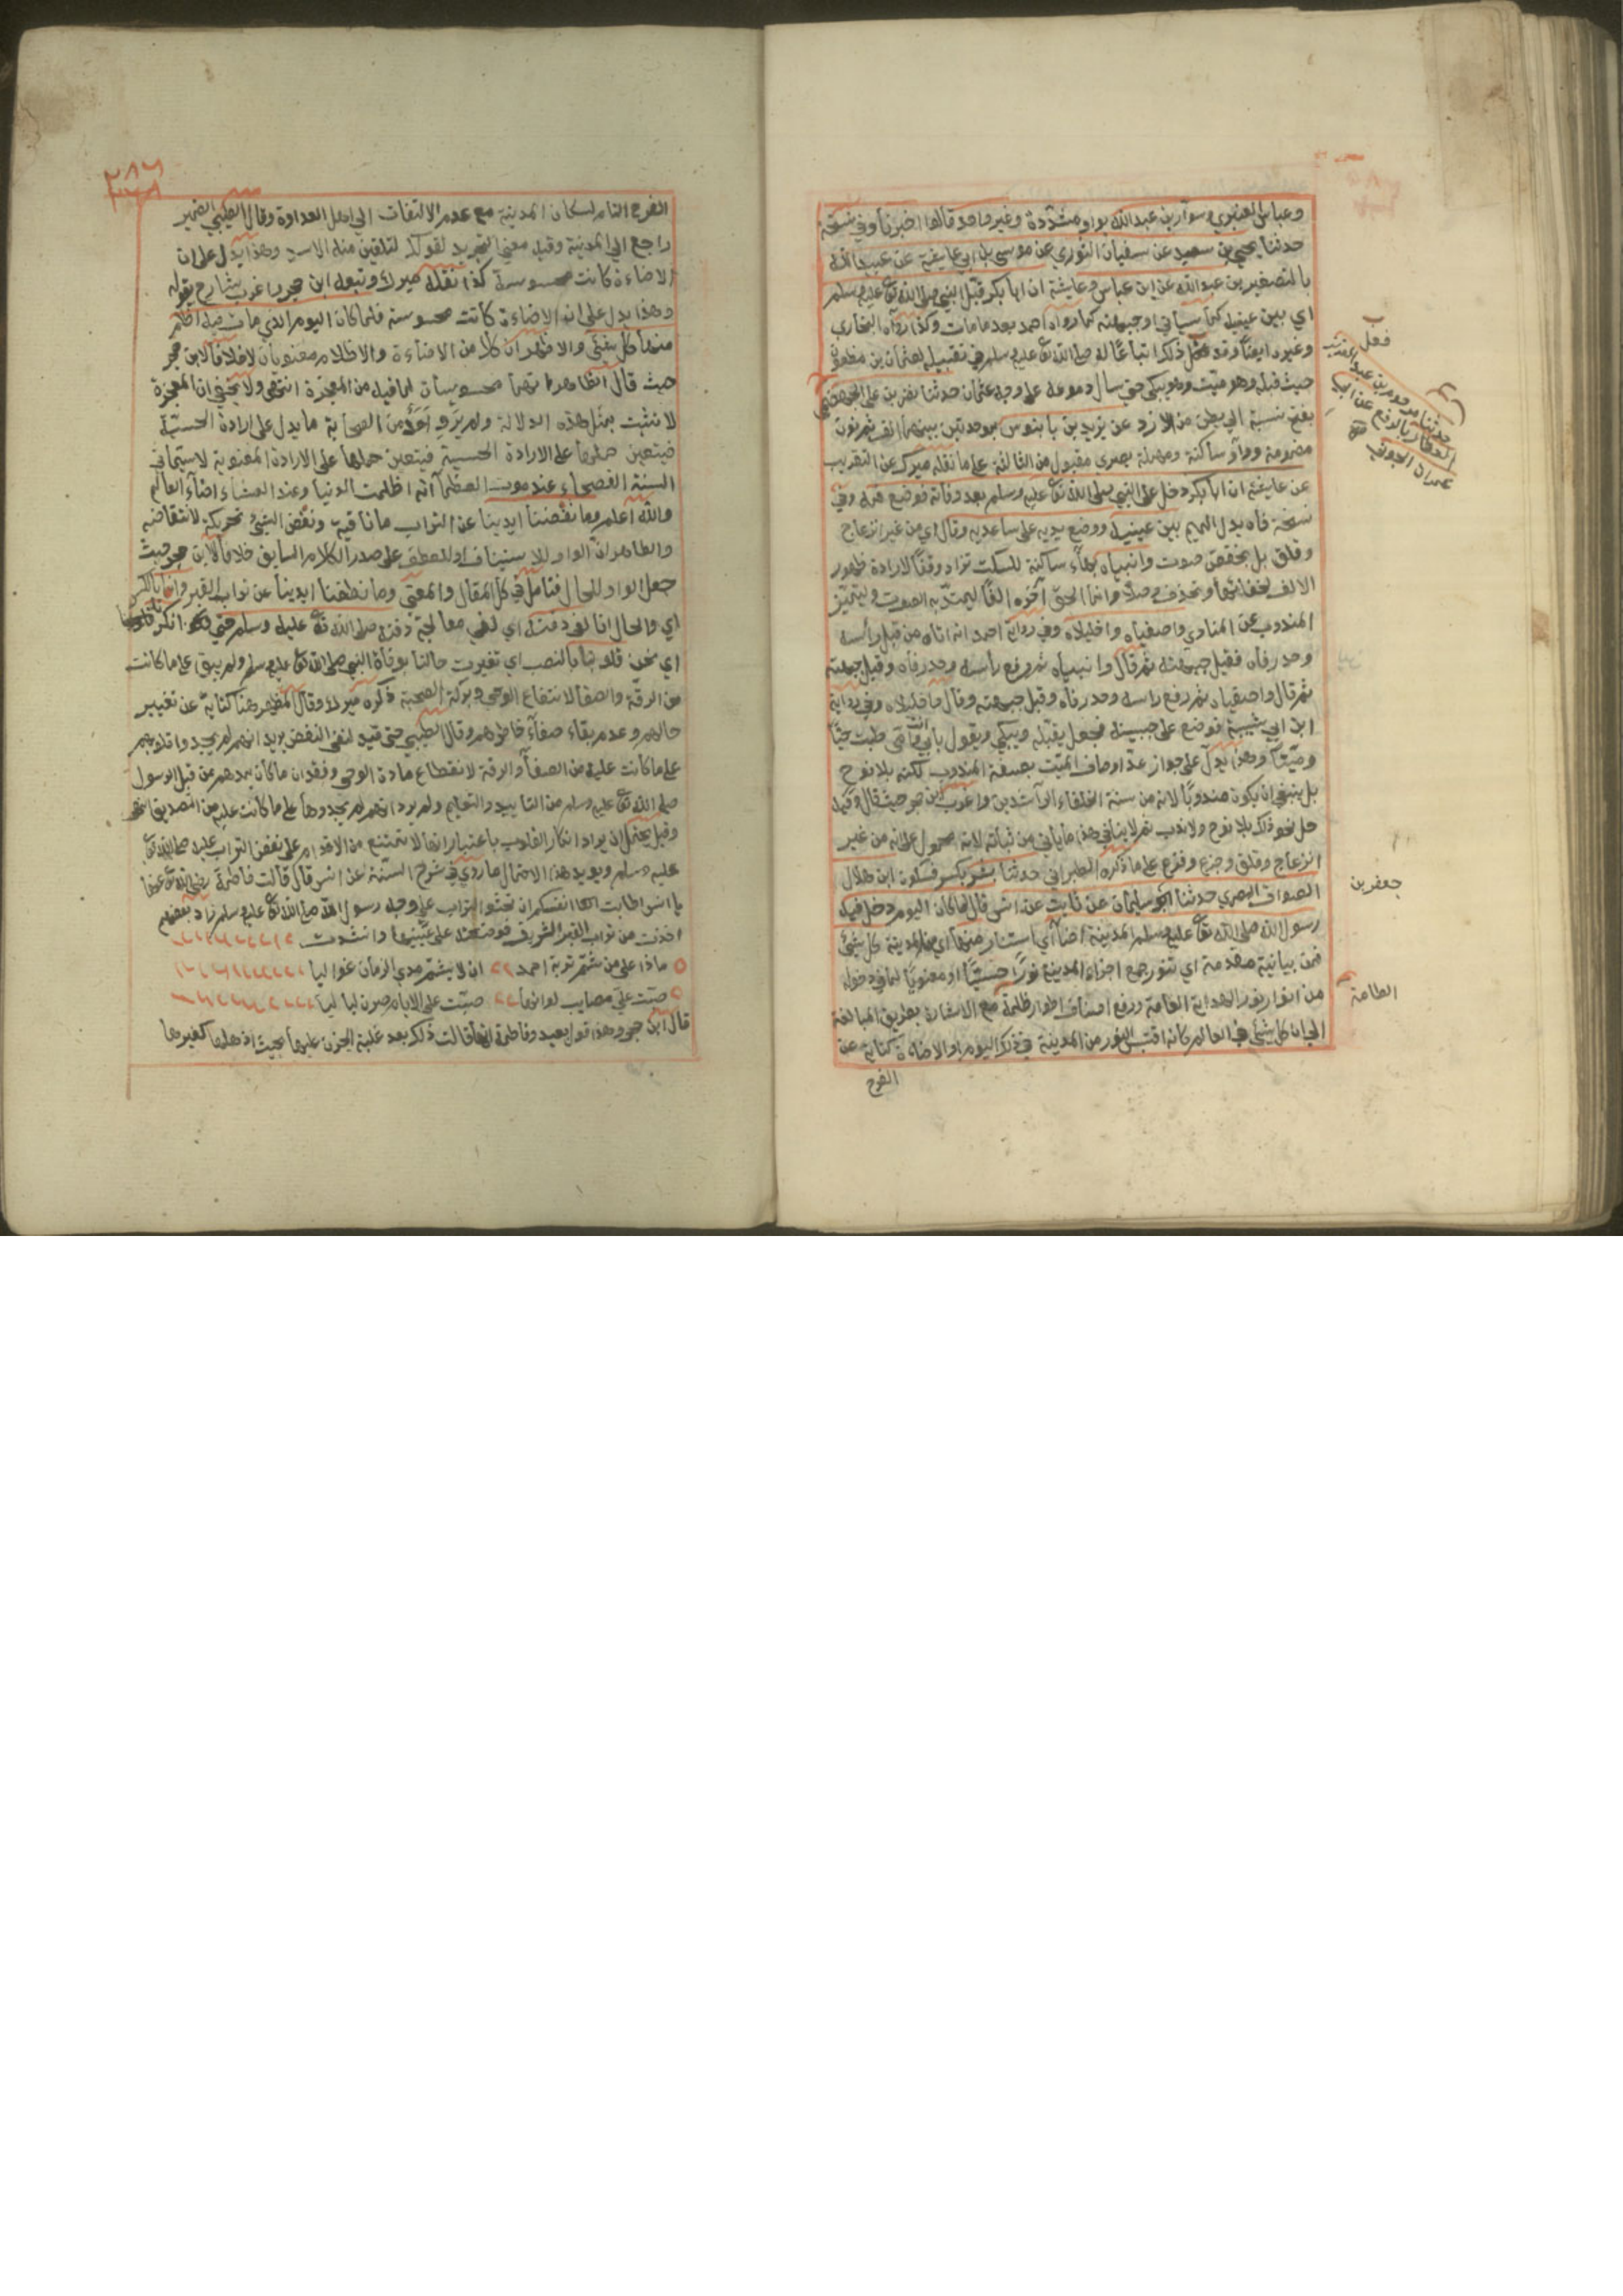 وعباس العنبري وسوار بن عبد الله بواو مشددة وغير واحد قالوا اخبرنا وفي نسخة
حدثنا يحيى بن سعيد عن سفيان الثوري عن موسى بن ابي عايشة عن عبيد الله
بالتصغير بن عبد الله عن ابن عباس وعايشة ان ابا بكر قبل النبي صلى الله تعا عليه وسلم
اي بين عينيه كما سياتي او جبهته كما رواه احمد بعد ما مات وكذا رواه البخاري
وغيره ايضا وقد فعل ذلك اتباعا له صلى الله تعا عليه وسلم في تقبيله لعثمان بن مظعون
حيث قبله وهو ميت وهو يبكي حتى سال دموعه على وجه عثمان حدثنا نصر بن علي الجهضمي
بفتح نسبة الى بطن من الازد عن يزيد بن بابنوس بموحدتين بينهما الف ثم نون
مضمومة وواو ساكنة ومهملة بصري مقبول من الثالثة على ما نقله ميرك عن التقريب
عن عايشة ان ابا بكر دخل على النبي صلى الله تعا عليه وسلم بعد وفاته فوضع فمه وفي
نسخة فاه بدل الميم بين عينيه ووضع يديه على ساعديه وقال اي من غير انزعاج
وقلق بل بخفض صوت وانبياه بهاء ساكنة للسكت تزاد وقفا لارادة ظهور
الالف لخفائها وتحذف وصلا وانما الحق آخره الفا ليمتد به الصوت وليتميز
المندوب عن المنادي واصفياه واخليلاه وفي رواية احمد انه اتاه من قبل رأسه
وحدر فاه فقبل جبهته ثم قال وانبياه ثم رفع رأسه وحدر فاه وقبل جبهته
ثم قال واصفياه ثم رفع راسه وحدر فاه وقبل جبهته وقال واخليلاه وفي رواية
ابن ابي شيبة فوضع على جبينه فجعل يقبله ويبكي ويقول بابي انت وامي طبت حيا
وميتا وهذا يدل على جواز عد اوصاف الميت بصيغة المندوب لكنه بلا نوح
بل ينبغي ان يكون مندوبا لانه من سنة الخلفاء الراشدين واغرب ابن حجر حيث قال وقيد
حل نحو ذلك بلا نوح ولا ندب ثم لا ينافي هذا ما ياتي من ثباته لانه محمول على انه من غير
انزعاج وقلق وجزع وفزع على ما ذكره الطبراني حدثنا بشر بكسر فسكون ابن هلال
الصواف البصري حدثنا ابو سليمان عن ثابت عن انس قال لما كان اليوم دخل فيه
رسول الله صلى الله تعا عليه وسلم المدينة اضاء اي استنار منها اي من المدينة كل شيئ
فمن بيانية مقدمة اي تنور جميع اجزاء المدينة نورا حسيا او معنويا لما في دخوله
من انوار نور الهداية العامة ورفع اصناف اطوار ظلمة مع الاشارة بطريق المبالغة
الى ان كل شيئ في العالم كانه اقتبس النور من المدينة في ذلك اليوم او الاضاءة كناية عن
الفرح
فعل
حدثنا مرحوم بن عبد العزيز
العطار بالرفع عن ابي
عمران الجوني
جعفر بن
الطامة
الفرح التام لسكان المدينة مع عدم الالتفات الى اهل العداوة وقال الطيبي الضمير
راجع الى المدينة وقيل معنى التجريد لقولك لتلقين منه الاسد وهذا يدل على ان
الاضاءة كانت محسوسة كذا نقله ميرك وتبعه ابن حجر واغرب شارح بقوله
وهذا يدل على ان الاضاءة كانت محسوسة فلما كان اليوم الذي مات فيه اظلم
منها كل شيئ والاظهر ان كلا من الاضاءة والاظلام معنويان لا خلافا لابن حجر
حيث قال الظاهر انهما محسوسان لما فيه من المعجزة انتهى ولا يخفى ان المعجزة
لا تثبت بمثل هذه الدلالة ولم يرو احد من الصحابة ما يدل على ارادة الحسية
فيتعين حملها على الارادة الحسية فيتعين حملها على الارادة المعنوية لا سيما في
السنة الفصحاء عند موت العظماء انه اظلمت الدنيا وعند العشاء اضاء العالم
والله اعلم وما نفضنا ايدينا عن التراب ما نافية ونفض الشيئ تحريكه لانتقاضه
والظاهر ان الواو للاستيناف او للعطف على صدر الكلام السابق خلافا لابن حجر حيث
جعل الواو للحال فتامل في كل المقال والمعنى وما نفضنا ايدينا عن تراب القبر وانا بالكسر
اي والحال انا لفي دفنه اي لفي معالجة دفنه صلى الله تعا عليه وسلم حتى انكرنا
اي نحن قلوبنا بالنصب اي تغيرت حالنا بوفاة النبي صلى الله تعا عليه وسلم ولم يبق على ما كانت
من الرقة والصفا لانتفاع الوحي وبركة الصحبة ذكره ميرك وقال المظهر هنا كناية عن تغيير
حالهم وعدم بقاء صفاء خاطرهم وقال الطيبي حتى قيد لنفي النفض يريد انهم لم يجدوا قلوبهم
على ما كانت عليه من الصفاء والرقة لانقطاع مادة الوحي وفقدان ما كان يمدهم من قبل الرسول
صلى الله تعا عليه وسلم من التاييد والتعليم ولم يرد انهم لم يجدوها على ما كانت عليه من التصديق
وقيل يحتمل ان يراد انكار القلوب باعتبار انها لا تمتنع من الاقدام على نفض التراب عليه صلى الله تعا
عليه وسلم ويويد هذا الاحتمال ما روي في شرح السنة عن انس قال قالت فاطمة رضي الله تعا عنها
يا انس اطابت انفسكم ان تحثوا التراب على وجه رسول الله صلى الله تعا عليه وسلم زاد بعضهم
اخذت من تراب القبر الشريف فوضعته على عينيها وانشدت
ماذا على من شم تربة احمد ان لا يشم مدى الزمان غواليا
صبت علي مصايب لو انها صبت على الايام صرن لياليا
قال ابن حجر وهذا قول بعيد وفاطمة انما قالت ذلك بعد غلبة الحزن عليها بحيث اذهلها كغيرها